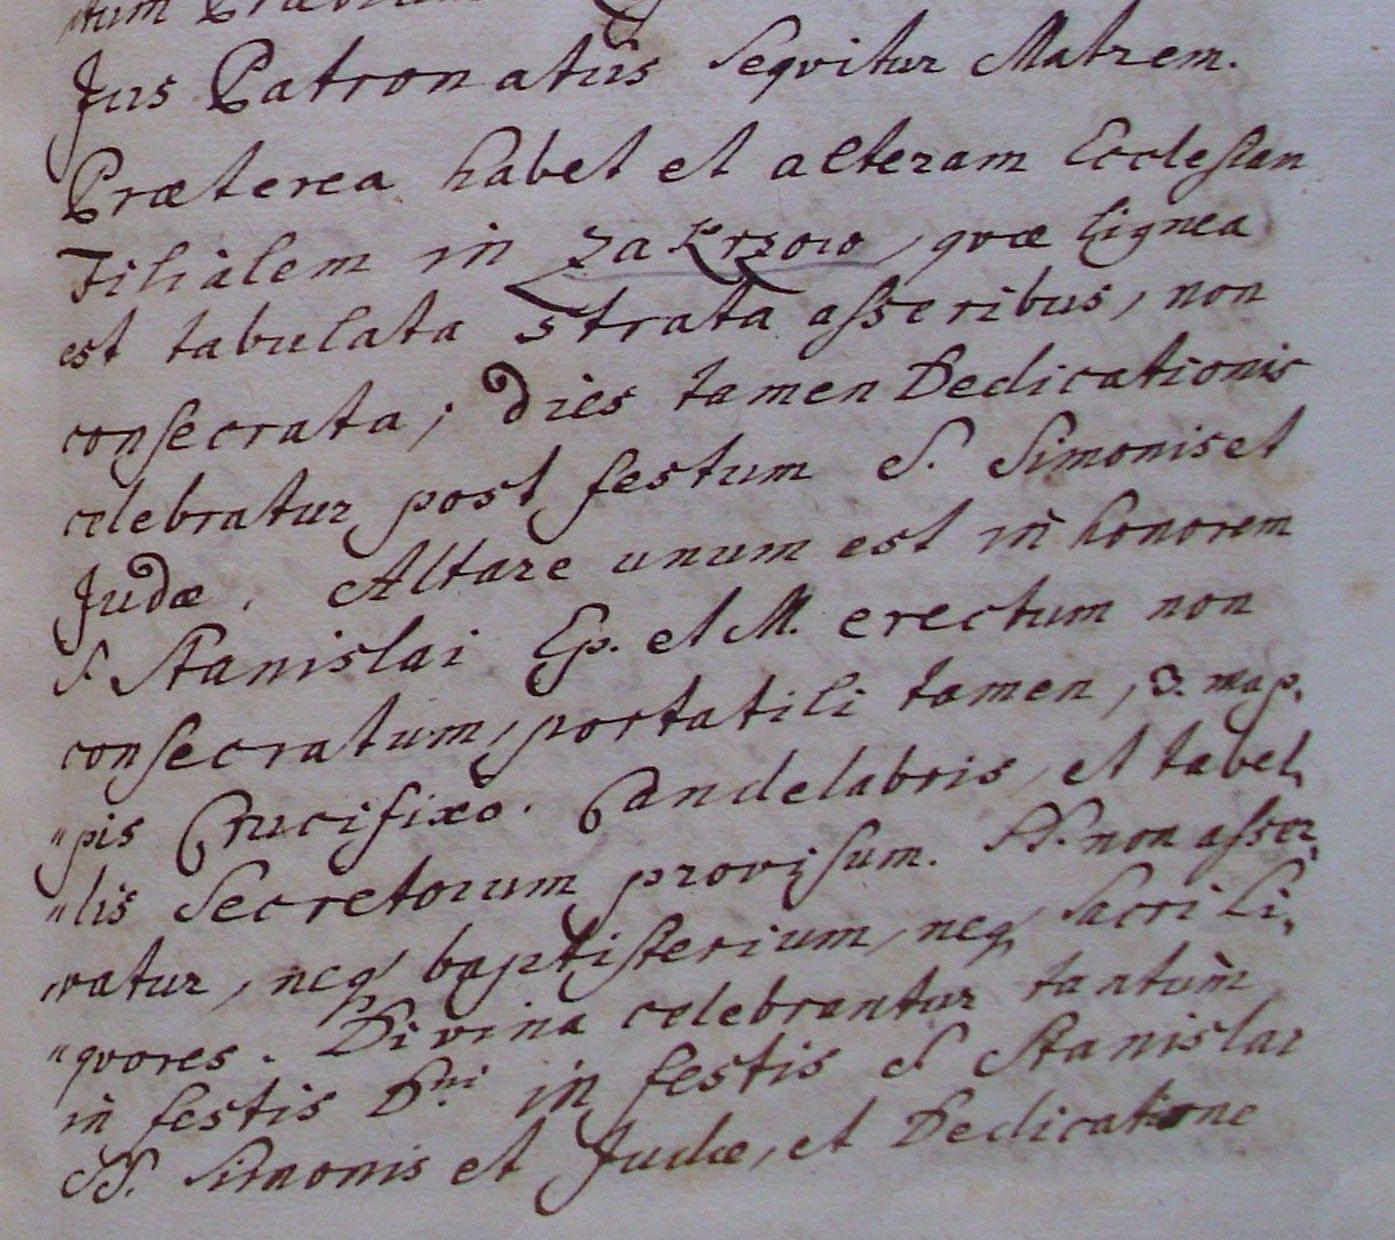 Jus Patronatûs Sequitur Matrem.
Præterea habet et alteram Ecclesian
Filialem in Zakrzow, quæ lignea
est tabulata strata asseribus, non
consecrata; dies tamen Dedicationis
celebratur post festum S. Simonis et
Judæ. Altare unum est in honorem
S. Stanislai Ep. et M. erectum non
consecratum, portatili tamen, 3. map,
"pis Crucifixo. Candelabris, et tabel,
"lis Secretorum provisum. SS. non asser,
"vatur, neq baptisterium, neq Sacri Li,
"quores. Divina celebrantur tantùm
in festis Dni in festis S. Stanislai
SS. Simonis et Judæ, et Dedicatione